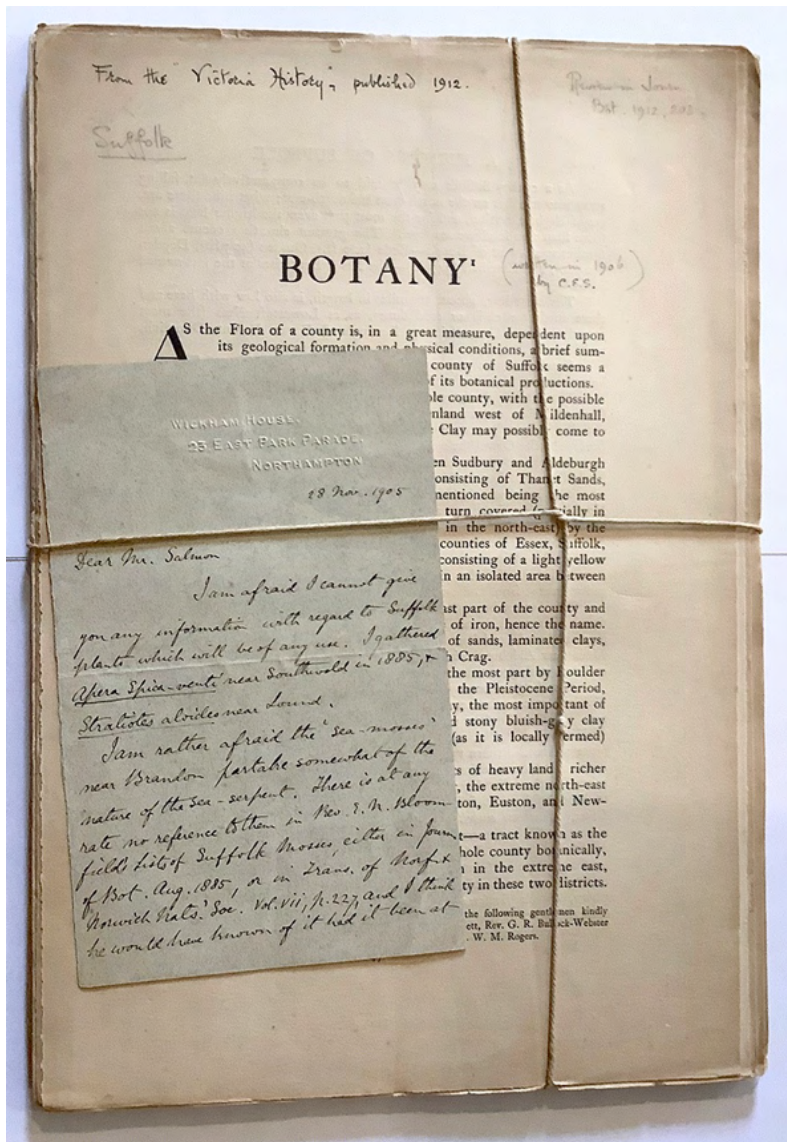 From the "Victoria History", published 1912.
Bot. 1912, 202.
Suffolk
BOTANY¹
(written in 1906
by C.E.S.
AS the Flora of a county is, in a great measure, dependent upon
its geological formation and physical conditions, a brief sum-
county of Suffolk seems a
of its botanical productions.
ole county, with the possible
enland west of Mildenhall,
Clay may possibly come to
en Sudbury and Aldeburgh
onsisting of Thanet Sands,
mentioned being the most
turn covered (partially in
in the north-east) by the
counties of Essex, Suffolk,
consisting of a light yellow
in an isolated area between
ast part of the county and
of iron, hence the name.
of sands, laminated clays,
h Crag.
the most part by Boulder
the Pleistocene Period,
y, the most important of
d stony bluish-grey clay
(as it is locally termed)
ts of heavy land, richer
, the extreme north-east
ton, Euston, and New-
t—a tract known as the
hole county botanically,
n in the extreme east,
ty in these two districts.
the following gentlemen kindly
ett, Rev. G. R. Bullock-Webster
. W. M. Rogers.
WICKHAM HOUSE,
23 EAST PARK PARADE,
NORTHAMPTON
28 Nov. 1905
Dear Mr. Salmon
I am afraid I cannot give
you any information with regard to Suffolk
plants which will be of any use. I gathered
Apera Spica-venti near Southwold in 1885, &
Stratiotes aloides near Lound.
I am rather afraid the "sea-mosses"
near Brandon partake somewhat of the
nature of the sea-serpent. There is at any
rate no reference to them in Rev. E. N. Bloom-
field's Lists of Suffolk Mosses, either in Journ.
of Bot. Aug. 1885, or in Trans. of Norf. &
Norwich Nats.' Soc. Vol. vii, p. 227, and I think
he would have known of it had it been at